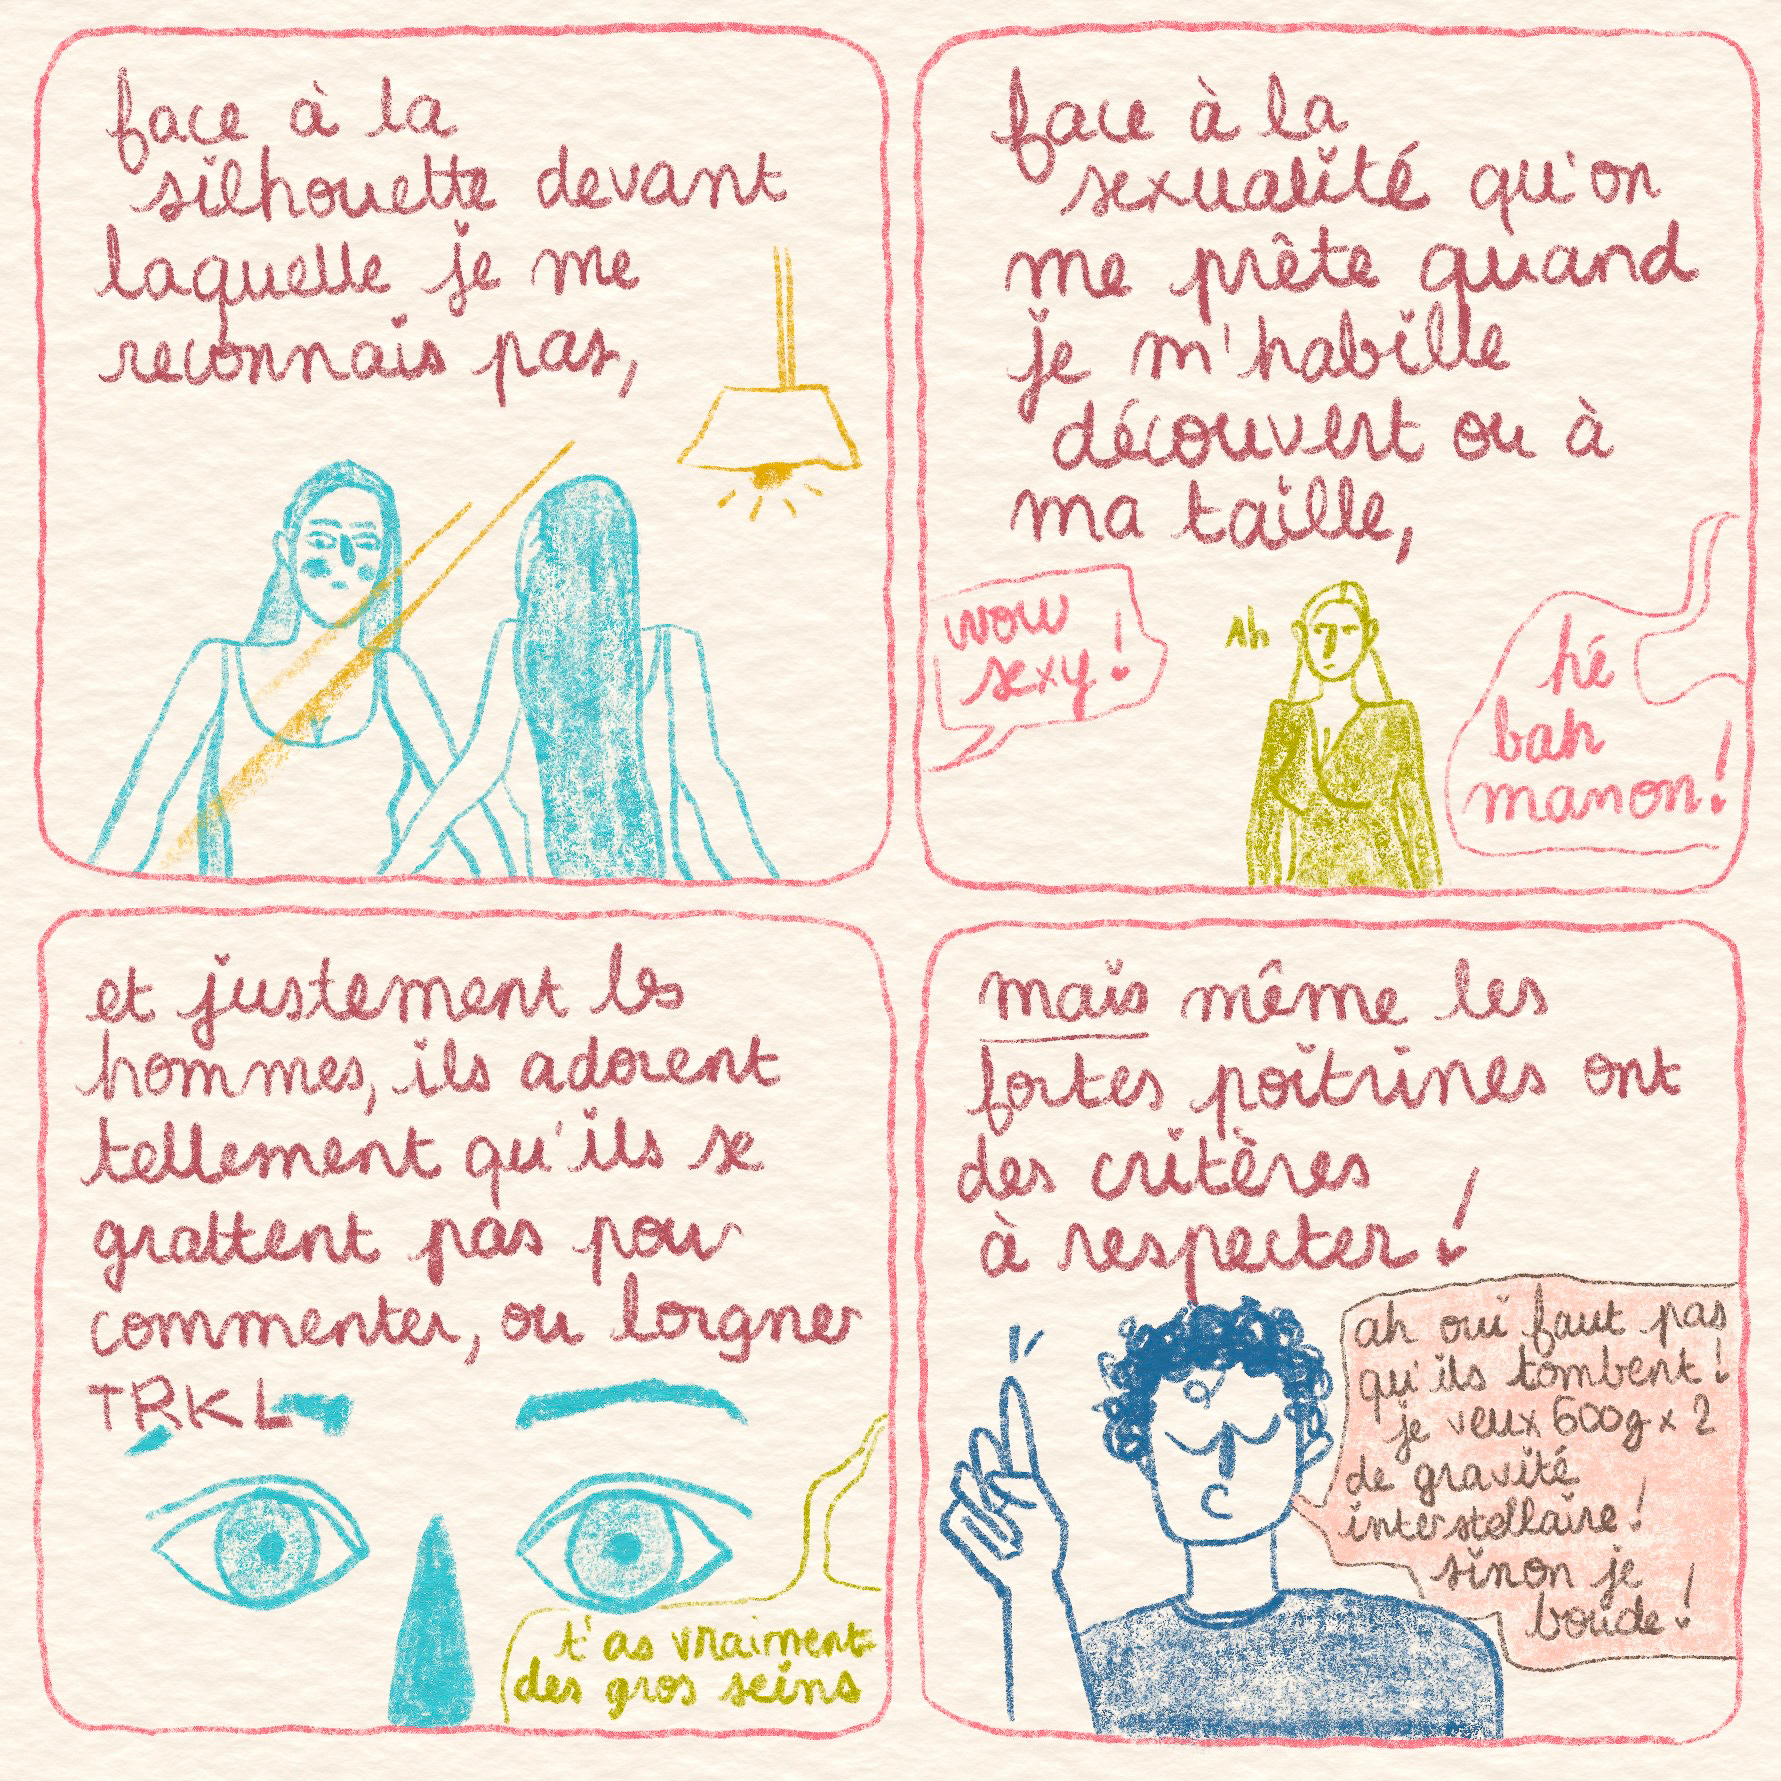 face à la
silhouette devant
laquelle je me
reconnais pas,
face à la
sexualité qu'on
me prête quand
je m'habille
découvert ou à
ma taille,
wow
sexy !
Ah
hé
bah
manon !
et justement les
hommes, ils adorent
tellement qu'ils se
grattent pas pour
commenter, ou lorgner
TRKL
t'as vraiment
des gros seins
mais même les
fortes poitrines ont
des critères
à respecter !
ah oui faut pas
qu'ils tombent !
je veux 600g x 2
de gravité
interstellaire !
sinon je
boude !